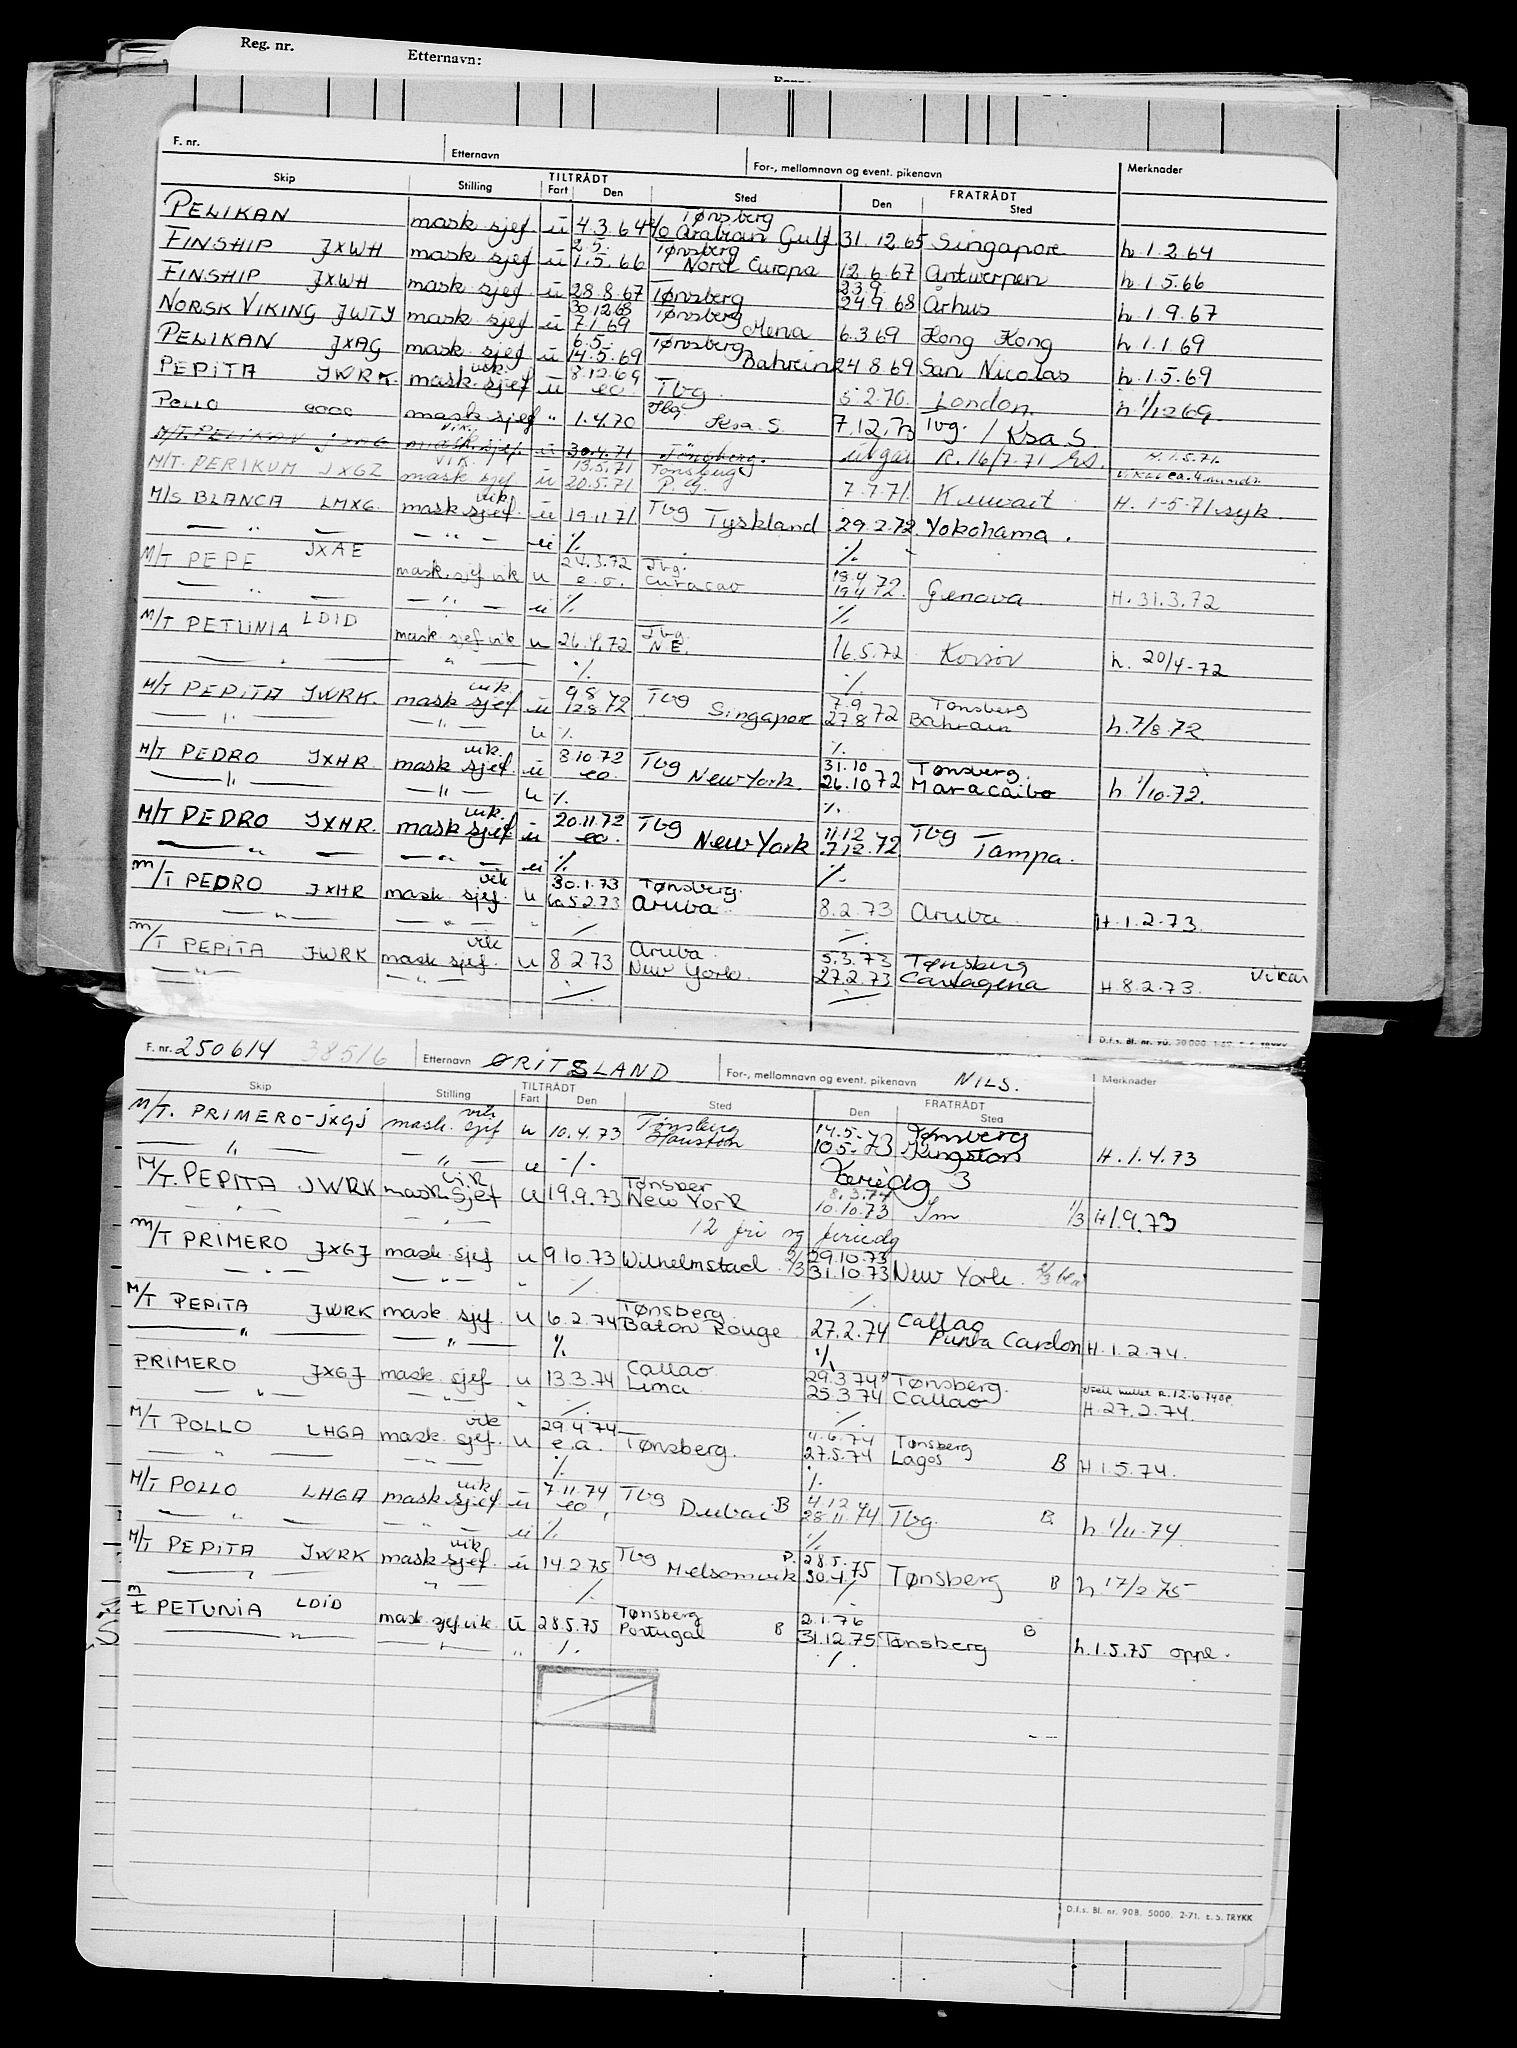 Reg. nr. Etternavn:
F. nr. Etternavn For-, mellomnavn og event. pikenavn Merknader
Skip Stilling TILTRÅDT FRATRÅDT
Fart Den Sted Den Sted
PELIKAN mask sjef u 4.3.64 Tønsberg Arabian Gulf 31.12.65 Singapore h.1.2.64
FINSHIP JXWH mask sjef u 2.5. 1.5.66 Tønsberg Nord Europa 12.6.67 Antwerpen h.1.5.66
FINSHIP JXWH mask sjef u 28.8.67 Tønsberg 23.9. 24.9.68 Århus h.1.9.67
NORSK VIKING JWTY mask sjef u 30.12.68 7.1.69 Tønsberg Mena 6.3.69 Hong Kong h.1.1.69
PELIKAN JXAG mask sjef u 6.5. 14.5.69 Tønsberg Bahrein 24.8.69 San Nicolas h.1.5.69
PEPITA JWRK. mask sjef vik. u 8.12.69 eo Tbg. 5.2.70. London. h 1/12 69.
POLLO mask sjef " 1.4.70 Tbg. 7.12.73 Tbg. /
M/T. PELIKAN mask. sjef. vik. u 30.4.71 Tönsberg. utgår R.16/7-71 H.1.5.71.
M/T. PERIKUM JXGZ mask sjef vik u 13.5.71 20.5.71 Tønsberg P.G. 7.7.71. Kuwait H. 1-5-71. syk.
M/S BLANCA LMXG. mask sjef. vik u 19.11.71 Tbg Tyskland 29.2.72. Yokohama.
— " — — " — u % %
M/T PEPE JXAE mask. sjef vik u 24.3.72 e.o. Tbg. Curacao 18.4 19.4.72. Genova H. 31.3.72
— " — — " — u % %
M/T PETUNIA LDID mask. sjef vik u 26.4.72 Tbg. N.E. 16.5.72 Korsör h. 20/4-72
— " — — " — % %
M/T PEPITA JWRK. mask sjef vik. u 9.8 12.8.72 Tbg Singapore 7.9 27.8.72 Tønsberg Bahrain h.7/8.72
— " — — " — u % %
M/T PEDRO JXHR. mask sjef. vik. u 8.10.72 eo. Tbg New York. 31.10 26.10.72 Tønsberg. Maracaibo h 1/10.72.
— " — — " — u % %
M/T PEDRO JXHR. mask sjef vik. u 20.11.72 eo. Tbg New York 11.12 7.12.72 Tbg Tampa.
— " — — " — u % %
M/T PEDRO JXHR mask sjef. vik u 30.1.73 5.2.73 Tønsberg. Aruba 8.2.73 Aruba H.1.2.73.
— " — — " — " % %
M/T PEPITA JWRK mask sjef. vik u 8.2.73 Aruba. New York. 5.3.73 27.2.73 Tønsberg Cartagena H.8.2.73. vikar
— " — — " — % %
F. nr. 250614 38516 Etternavn ØRITSLAND For-, mellomnavn og event. pikenavn NILS. Merknader
Skip Stilling TILTRÅDT FRATRÅDT
Fart Den Sted Den Sted
M/T. PRIMERO-JXGJ mask. sjef vik u 10.4.73 Tønsberg Houston 14.5-73 10.5-73 Tønsberg Kingston H.1.4.73
— " — — " — u -/-
M/T. PEPITA JWRK mask sjef vik u 19.9.73 Tønsber New York feriedg 3 8.3.74 10.10.73 1/3 H1.9.73
— " — — " — 12 fri og feriedg
M/T PRIMERO JXGJ mask sjef u 9.10.73 Wilhelmstad 2/3 29.10.73 31.10.73 New York.
— " — — " — " % %
M/T PEPITA JWRK mask sjef. u 6.2.74 Tønsberg. Baton Rouge 27.2.74 Callao Punta Cardon H.1.2.74.
— " — — " — % %
PRIMERO JXGJ mask sjef u 13.3.74 Callao. Lima. 29.3.74 25.3.74 Tønsberg. Callao H.27.2.74.
— " — — " — " % %
M/T POLLO LHGA mask sjef. vik u 29.4.74 e.a. Tønsberg. 11.6.74 27.5.74 Tønsberg Lagos B H.1.5.74.
— " — — " — % %
M/T POLLO LHGA mask sjef vik u 7.11.74 eo Tbg Dubai B 4.12 28.11.74 Tbg. B. h 1/11.74.
— " — — " — u % %
M/T PEPITA JWRK mask sjef. vik u 14.2.75 Tbg Melsomvik P. 28.5.75 30.4. Tønsberg B h 17/2 75
— " — — " — % %
M/T PETUNIA LDID mask. sjef. vik. u 28.5.75 Tønsberg Portugal B 2.1.76 31.12.75 Tønsberg B h.1.5.75 oppl.
— " — — " — " % %
D.f.s. Bl. nr. 90B. 5000. 2-71. E. S. TRYKK